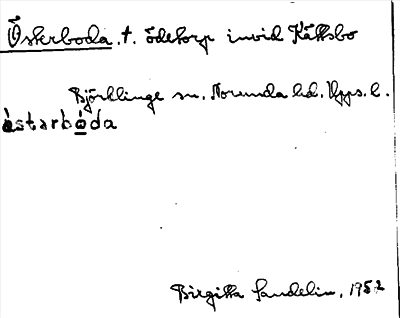 Österboda. t. ödetorp invid Kättsbo
Björklinge sn. Norunda hd. Upps. l.
östarbo̲da
Birgitta Sandelin, 1952